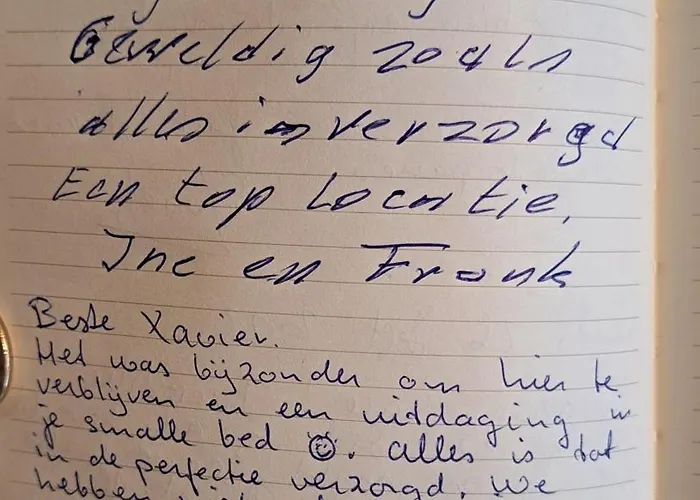 Geweldig zoals
alles is verzorgd
Een top locatie,
Ine en Frank
Beste Xavier.
Het was bijzonder om hier te
verblijven en een uitdaging in
je smalle bed ☺. Alles is tot
in de perfectie verzorgd. We
hebben